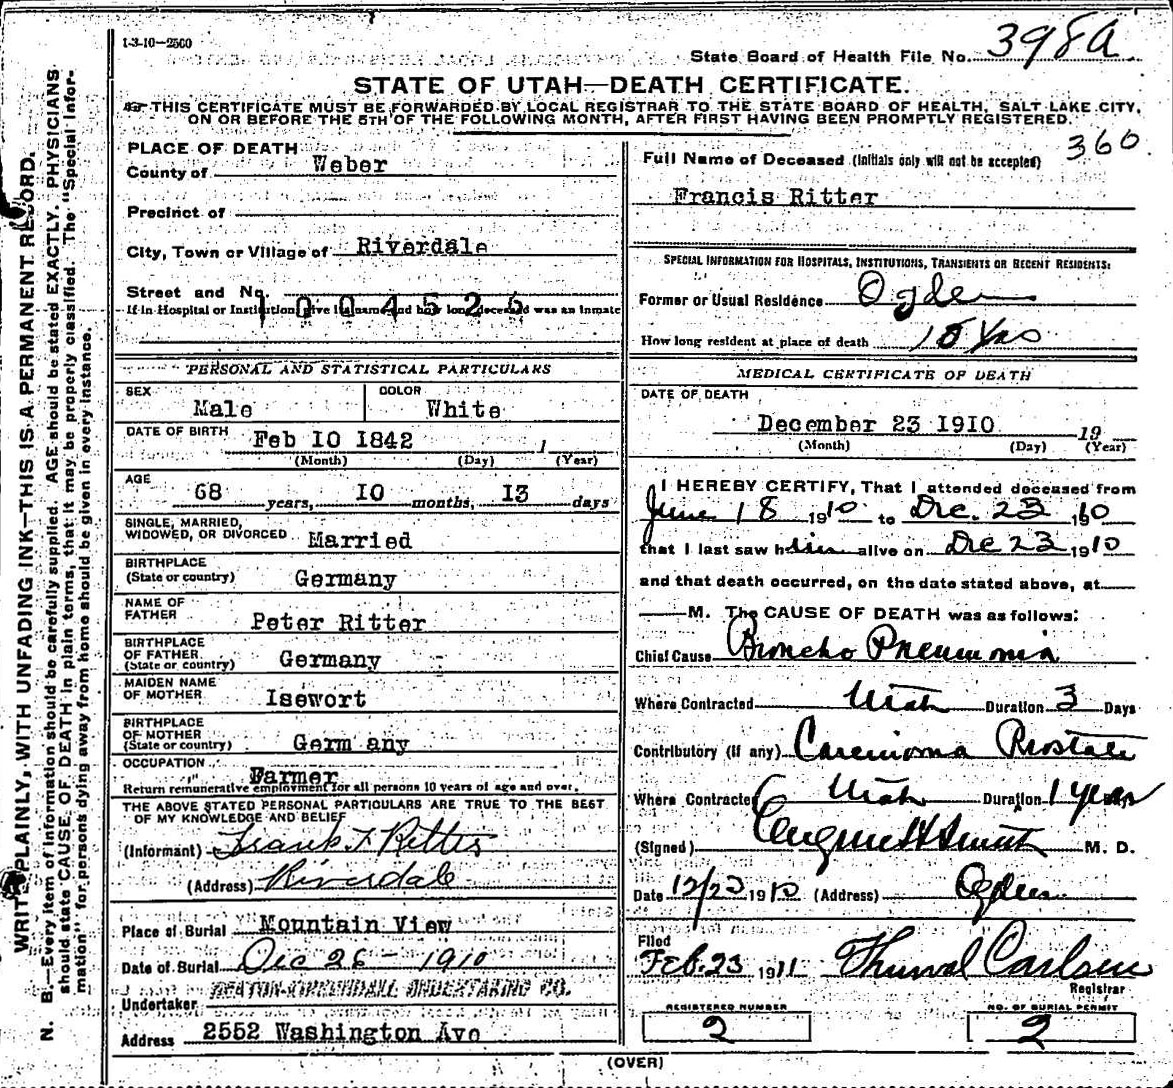 1-3-10—2500
State Board of Health File No. 398a
STATE OF UTAH—DEATH CERTIFICATE.
THIS CERTIFICATE MUST BE FORWARDED BY LOCAL REGISTRAR TO THE STATE BOARD OF HEALTH, SALT LAKE CITY,
ON OR BEFORE THE 5TH OF THE FOLLOWING MONTH, AFTER FIRST HAVING BEEN PROMPTLY REGISTERED.
360
WRITE PLAINLY, WITH UNFADING INK—THIS IS A PERMANENT RECORD.
N. B.—Every item of information should be carefully supplied. AGE should be stated EXACTLY. PHYSICIANS
should state CAUSE OF DEATH in plain terms, that it may be properly classified. The "Special Infor-
mation" for persons dying away from home should be given in every instance.
PLACE OF DEATH
County of Weber
Precinct of
City, Town or Village of Riverdale
Street and No.
1004526
If in Hospital or Institution, give its name and how long deceased was an inmate
PERSONAL AND STATISTICAL PARTICULARS
SEX Male COLOR White
DATE OF BIRTH Feb 10 1842 1
(Month) (Day) (Year)
AGE 68 years, 10 months, 13 days
SINGLE, MARRIED,
WIDOWED, OR DIVORCED Married
BIRTHPLACE
(State or country) Germany
NAME OF
FATHER Peter Ritter
BIRTHPLACE
OF FATHER
(State or country) Germany
MAIDEN NAME
OF MOTHER Isewort
BIRTHPLACE
OF MOTHER
(State or country) Germ any
OCCUPATION
Farmer
Return remunerative employment for all persons 10 years of age and over.
THE ABOVE STATED PERSONAL PARTICULARS ARE TRUE TO THE BEST
OF MY KNOWLEDGE AND BELIEF
(Informant) Frank F Ritter
(Address) Riverdale
Place of Burial Mountain View
Date of Burial Dec 26 — 1910
Undertaker UNDERTAKING CO.
Address 2552 Washington Ave
Full Name of Deceased (Initials only will not be accepted)
Francis Ritter
SPECIAL INFORMATION FOR HOSPITALS, INSTITUTIONS, TRANSIENTS OR RECENT RESIDENTS:
Former or Usual Residence Ogden
How long resident at place of death Yrs
MEDICAL CERTIFICATE OF DEATH
DATE OF DEATH
December 23 1910 19
(Month) (Day) (Year)
I HEREBY CERTIFY, That I attended deceased from
June 18 1910 to Dec. 23 1910
that I last saw him alive on Dec 23 1910
and that death occurred, on the date stated above, at
M. The CAUSE OF DEATH was as follows:
Chief Cause Broncho Pneumonia
Where Contracted Utah Duration 3 Days
Contributory (if any) Carcinoma Prostate
Where Contracted Utah Duration 1 year
(Signed) Eugene H Smith M. D.
Date 12/23 1910 (Address) Ogden
Filed
Feb. 23 1911 Thurval Carlsen
Registrar
REGISTERED NUMBER
2
NO. OF BURIAL PERMIT
2
(OVER)